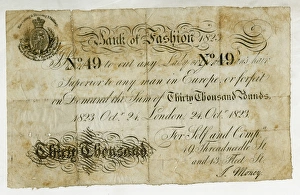 Bank of Fashion 1823
No. 49 No. 49
to cut any Lady
Superior to any man in Europe, or forfeit
on Demand the Sum of Thirty Thousand Bunds.
1823 Oct. 24. London, 24. Oct. 1823.
For Self and Comp.
49 Threadneedle St
and 13 Fleet St
Thirty Thousand
J. Money